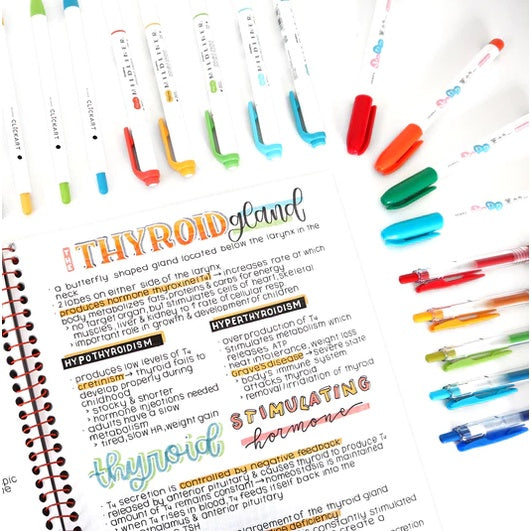 CLICKART
CLICKART
CLICKART
MILDLINER
MILDLINER
MILDLINER
MILDLINER
THE THYROID gland
a butterfly shaped gland located below the larynx in the
neck
2 lobes on either side of the larynx
produces hormone thyroxine (T4) → increases rate at which
body metabolizes fats, proteins & carbs for energy
no target organ, but stimulates cells of heart, skeletal
muscles, liver & kidney to ↑ rate of cellular resp
important role in growth & development of children
HYPOTHYROIDISM
produces low levels of T4
cretinism → thyroid fails to
develop properly during
childhood
stocky & shorter
hormone injections needed
adults have a slow
metabolism
tired, slow HR, weight gain
HYPERTHYROIDISM
overproduction of T4
stimulates metabolism which
releases ATP
heat intolerance, weight loss
Graves disease → severe state
body's immune system
attacks thyroid
removal/irridiation of thyroid
thyroid STIMULATING
hormone
T4 secretion is controlled by negative feedback
released by anterior pituitary & causes thyroid to produce T4
amount of T4 remains constant → homeostasis is maintained
when T4 rises in blood, T4 feeds itself back into the
hypothalamus & anterior pituitary
TSH
deficiency
enlargement of the thyroid gland
constantly stimulated
create a